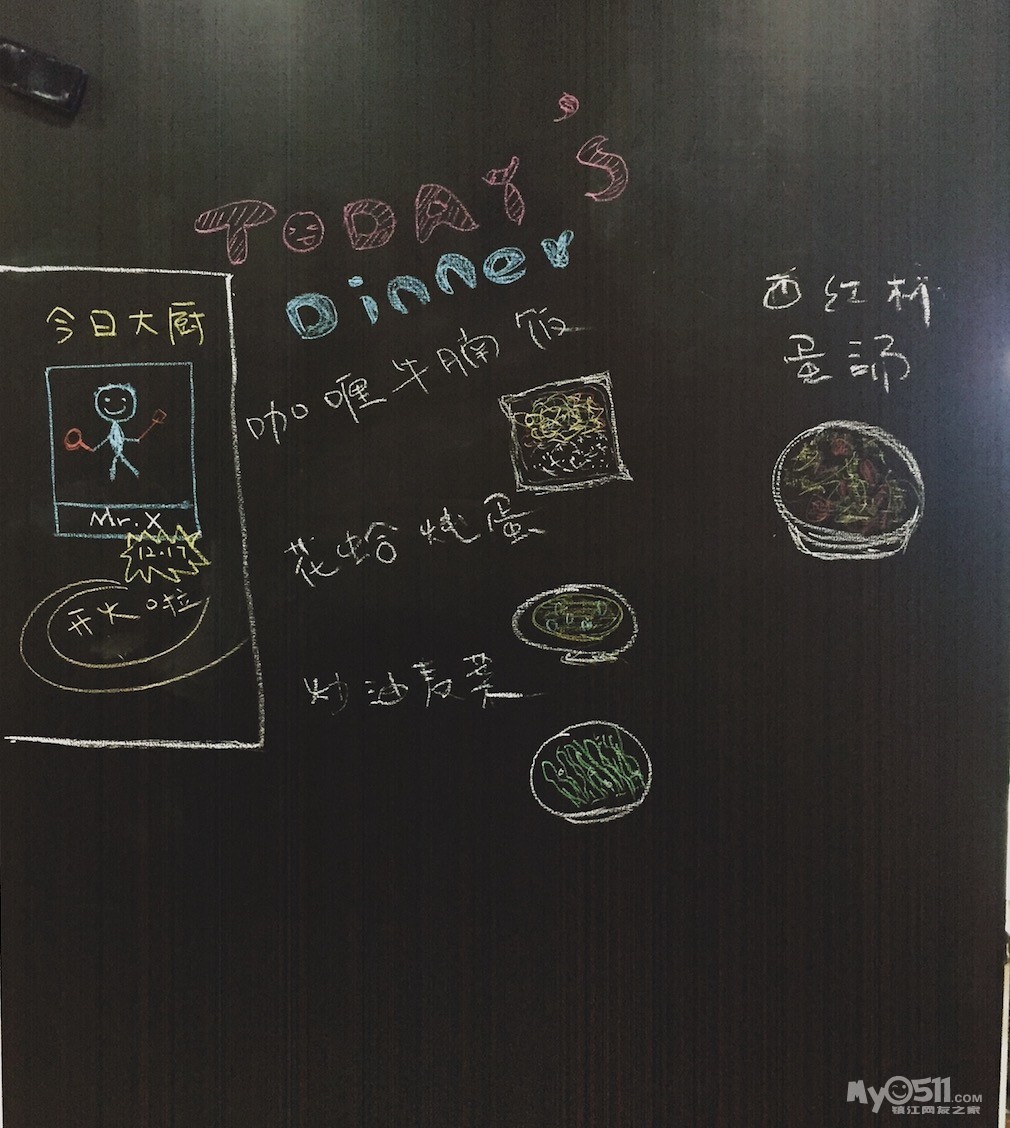 TODAY'S
Dinner
今日大厨
Mr.X
12.17
开火啦
咖喱牛腩饭
花蛤炖蛋
炒油麦菜
西红柿
蛋汤
My0511.COM
镇江网友之家